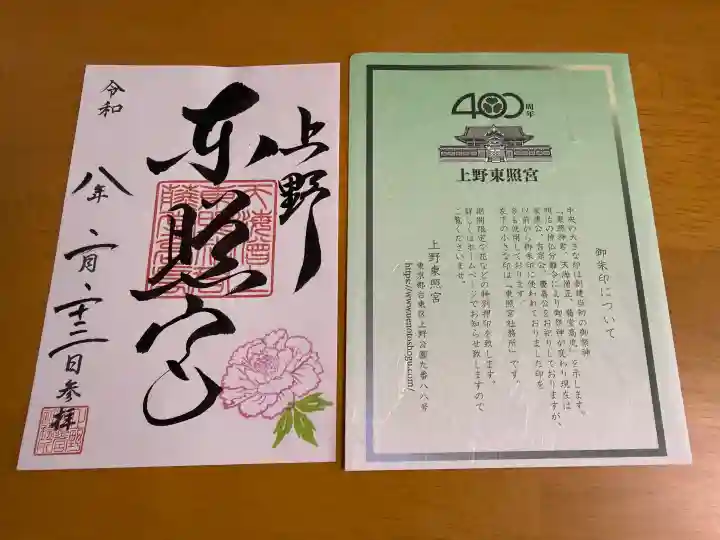 上野
東照宮
令和
八年
二月
二十三日参拝
400周年
上野東照宮
御朱印について
中央の大きな印は創建当初の御祭神
「東照神君、天海僧正、藤堂高虎」と示します。
明治の神仏分離令により御祭神が変わり現在は
家康公、吉宗公、慶喜公をお祀りしておりますが、
以前から御朱印に使われておりました印を
今も使用しております。
左下の小さな印は「東照宮社務所」です。
期間限定で花などの特別押印を致します。
詳しくはホームページでお知らせ致しますので
ご覧くださいませ。
上野東照宮
東京都台東区上野公園九番八八号
https://www.uenotoshogu.com/